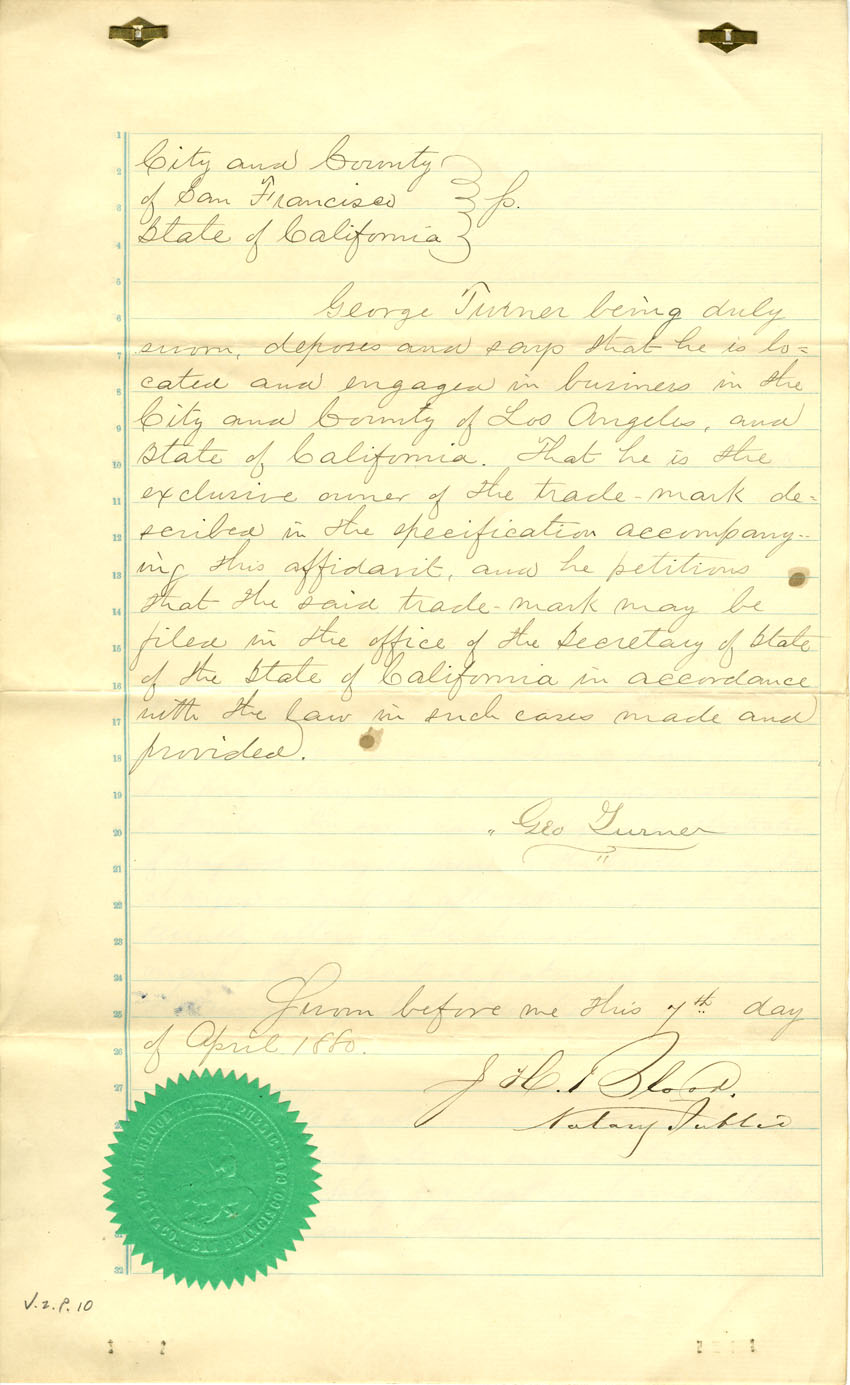 City and County
of San Francisco } ss.
State of California
George Turner being duly
sworn, deposes and says that he is lo=
cated and engaged in business in the
City and County of Los Angeles, and
State of California. That he is the
exclusive owner of the trade-mark de=
scribed in the specification accompany-
ing this affidavit, and he petitions
that the said trade-mark may be
filed in the office of the Secretary of State
of the State of California in accordance
with the law in such cases made and
provided.
Geo Turner
Sworn before me this 7th day
of April 1880.
J. H. Blood.
Notary Public
J. H. BLOOD NOTARY PUBLIC
CITY & CO. SAN FRANCISCO CAL
V.2.P.10
1
2
3
4
5
6
7
8
9
10
11
12
13
14
15
16
17
18
19
20
21
22
23
24
25
26
27
32